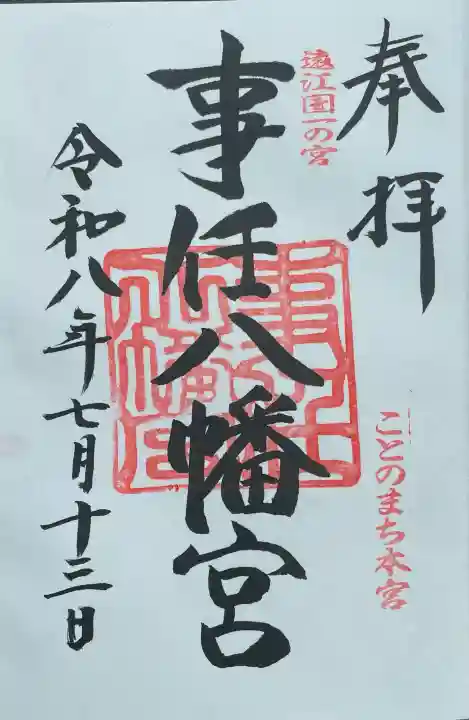 奉拝
遠江国一の宮
ことのまち本宮
事任八幡宮
令和八年七月十三日